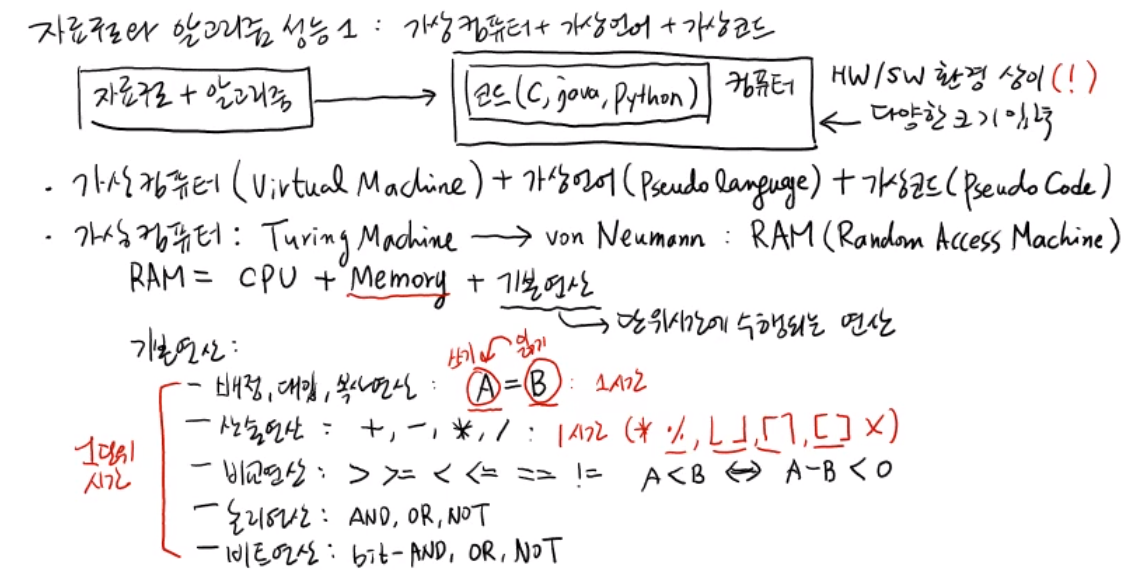 자료구조와 알고리즘 성능 1 : 가상컴퓨터 + 가상언어 + 가상코드
자료구조 + 알고리즘
코드(C, java, Python)
컴퓨터
HW/SW 환경 상이 (!)
다양한 크기 입력
· 가상컴퓨터 (Virtual Machine) + 가상언어 (Pseudo language) + 가상코드 (Pseudo Code)
· 가상컴퓨터 : Turing Machine → von Neumann : RAM (Random Access Machine)
RAM = CPU + Memory + 기본연산
→ 단위시간에 수행되는 연산
기본연산 :
쓰기 읽기
- 배정, 대입, 복사연산 : A = B : 1시간
- 산술연산 : +, -, *, / : 1시간 (* %, ⌊ ⌋, ⌈ ⌉, [ ] X)
1단위
시간
- 비교연산 : > >= < <= == != A < B ⇔ A - B < 0
- 논리연산 : AND, OR, NOT
- 비트연산 : bit-AND, OR, NOT